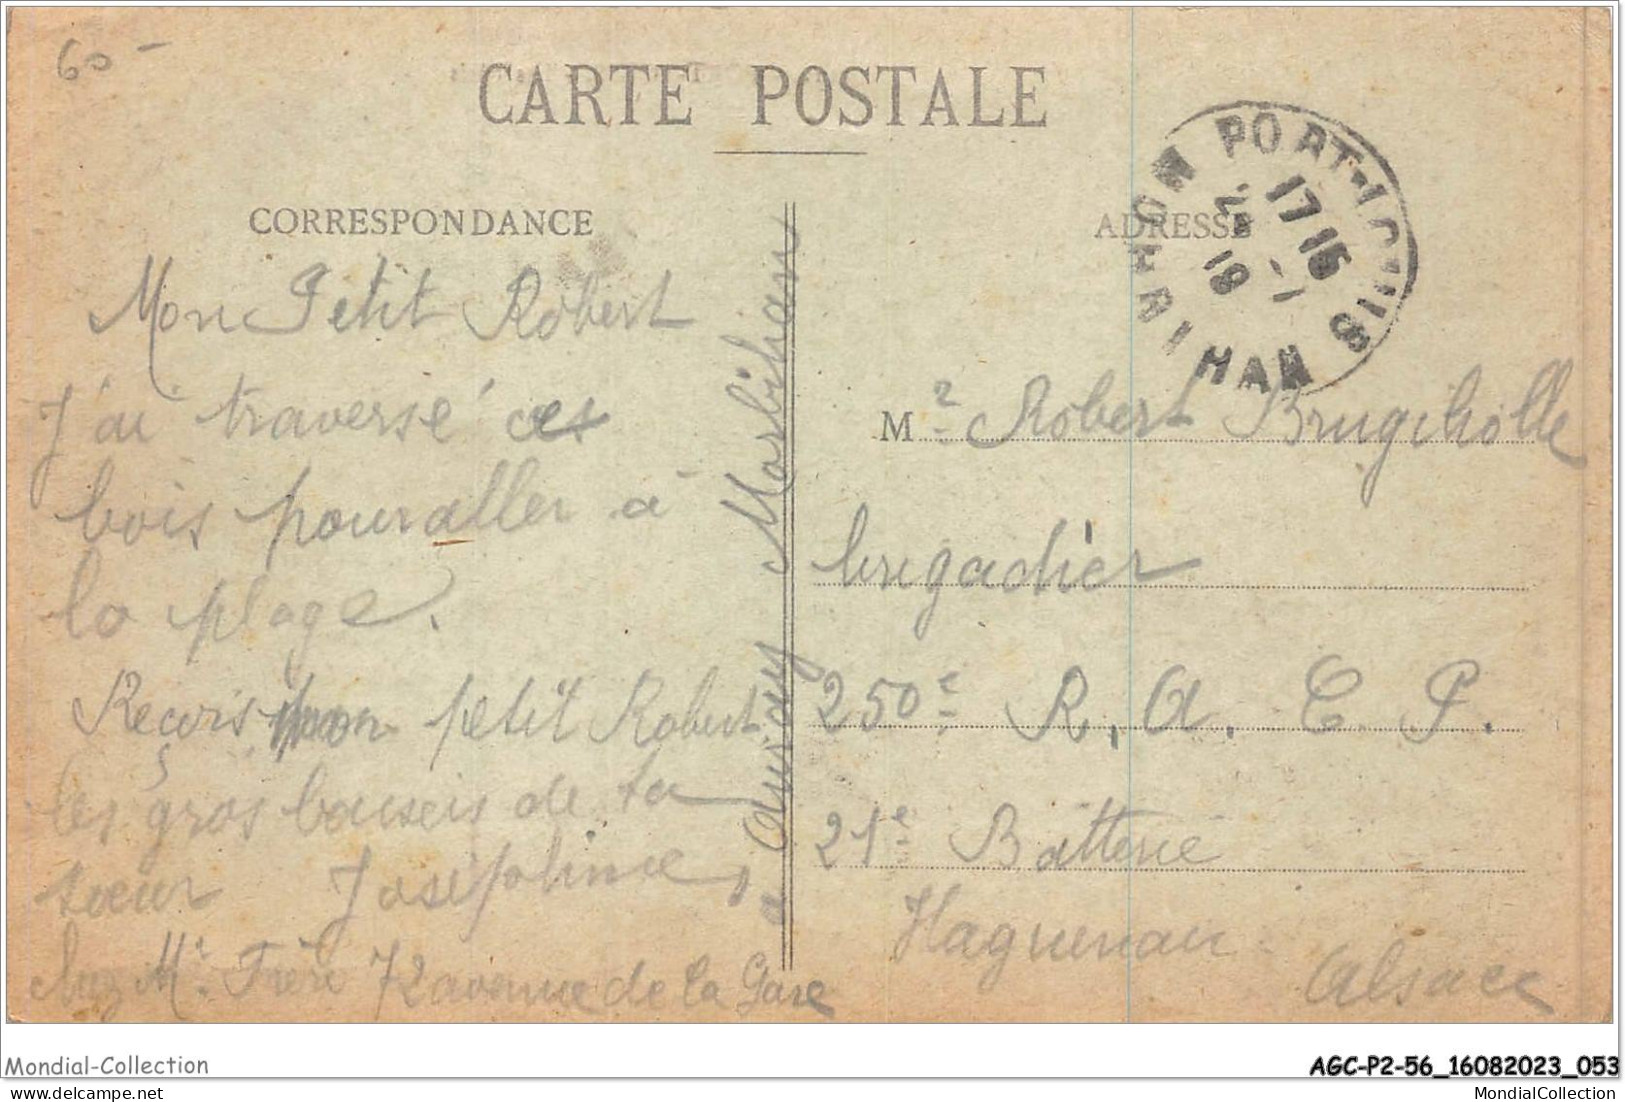 60 -
CARTE POSTALE
CORRESPONDANCE
Mon Petit Robert
J'ai traversé ces
bois pour aller à
la plage.
Reçois mon petit Robert
les gros baisers de ta
sœur Joséphine,
chez Mr. Frère 72 avenue de la Gare
a Auray Morbihan
ADRESSE
PORT-LOUIS
17 15
MORBIHAN
Mr Robert
brigadier
250e R. A. C. P.
21e Batterie
Haguenau
Alsace
Mondial-Collection
AGC-P2-56_16082023_053
MondialCollection